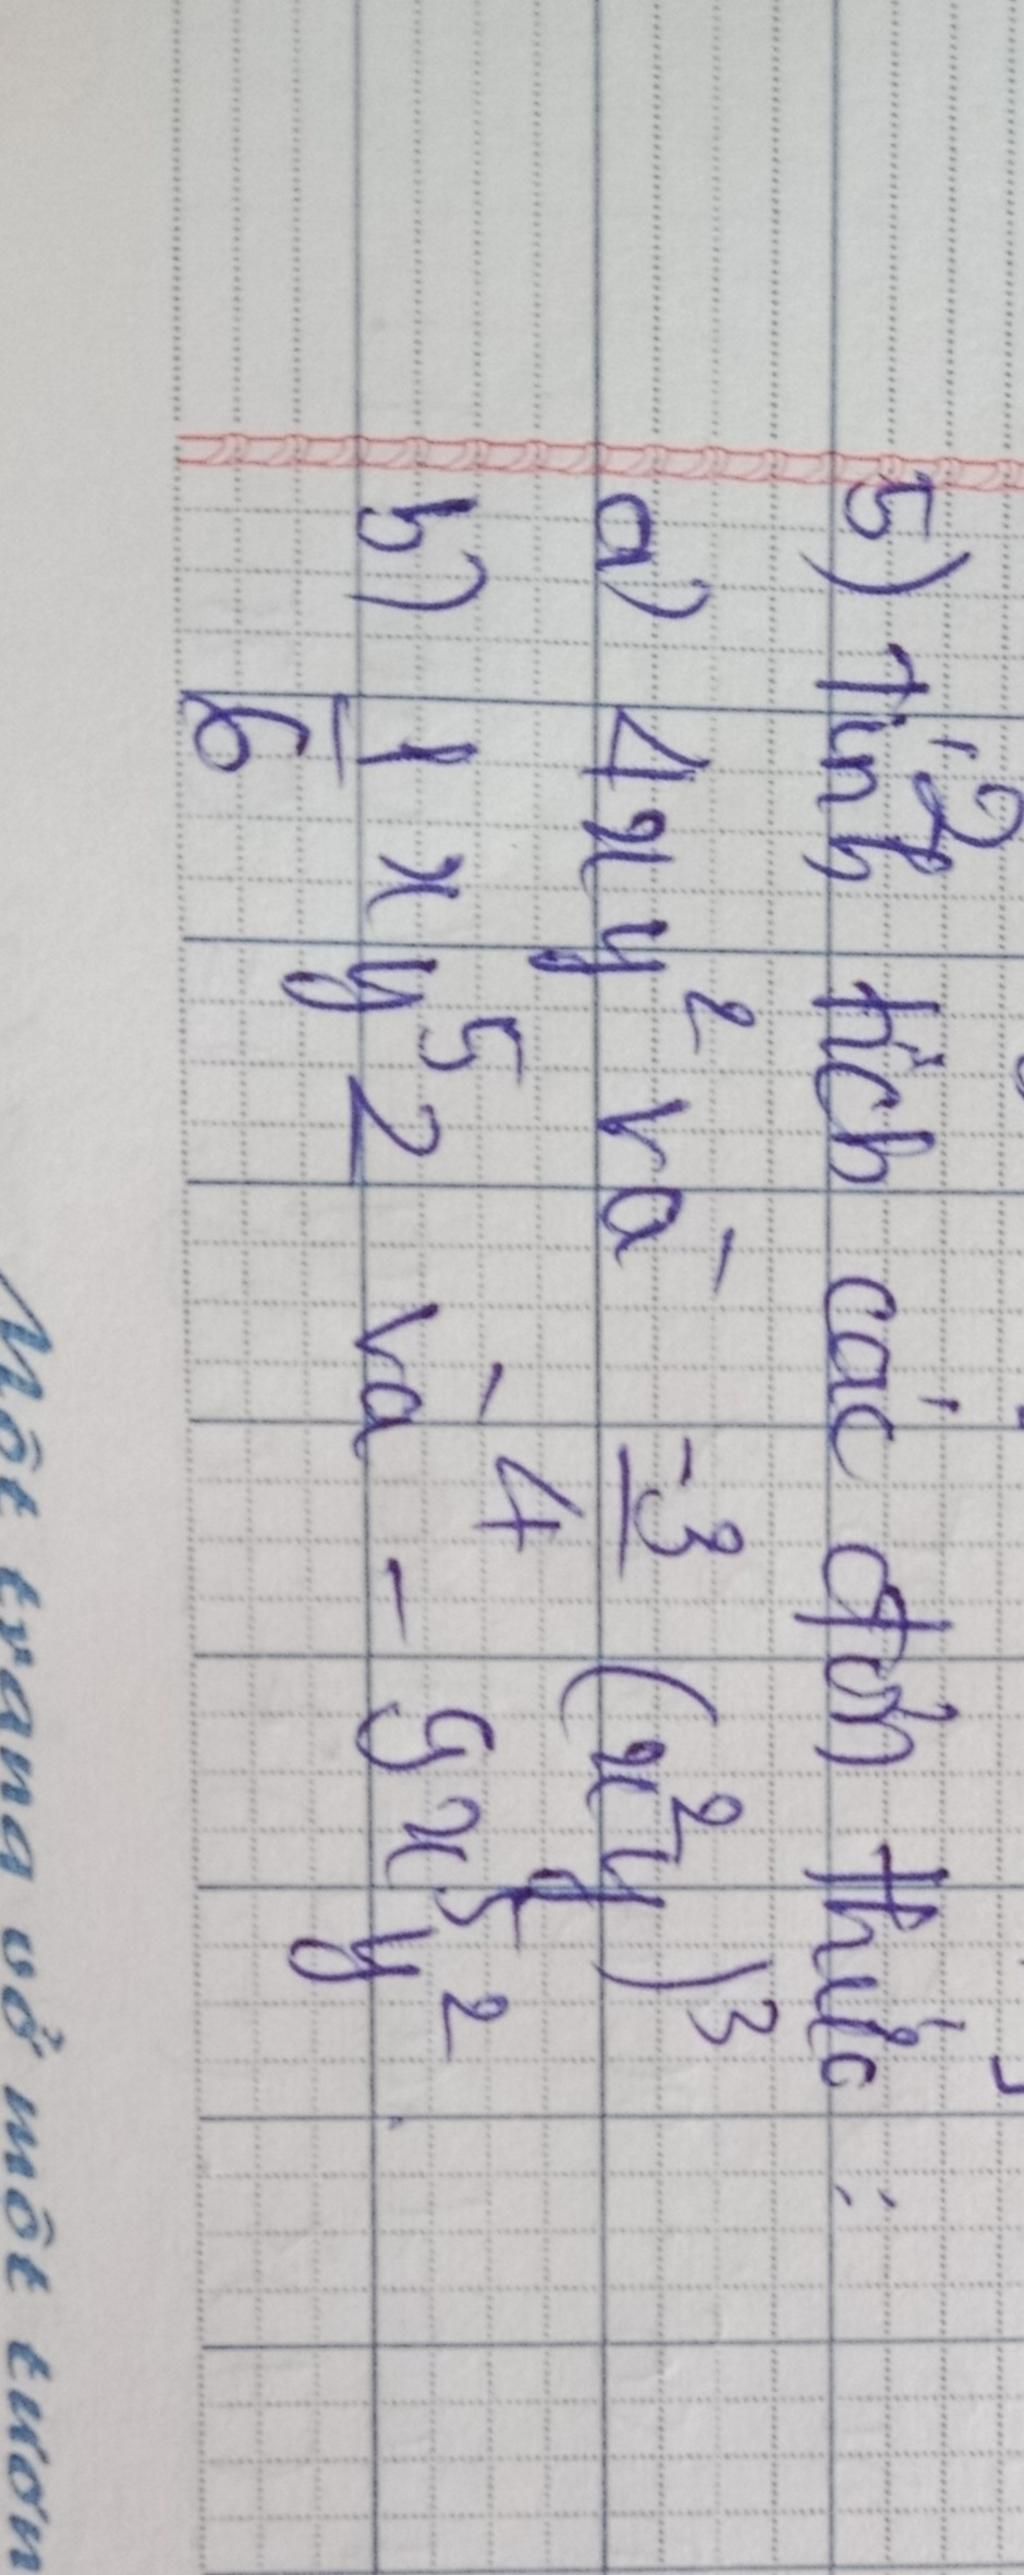 5) Tính tích các đơn thức:
a) 4xy² và -3/4 (x²y)³
b) 1/6 xy⁵z và -5x⁵y²
Một trang vở một tươn